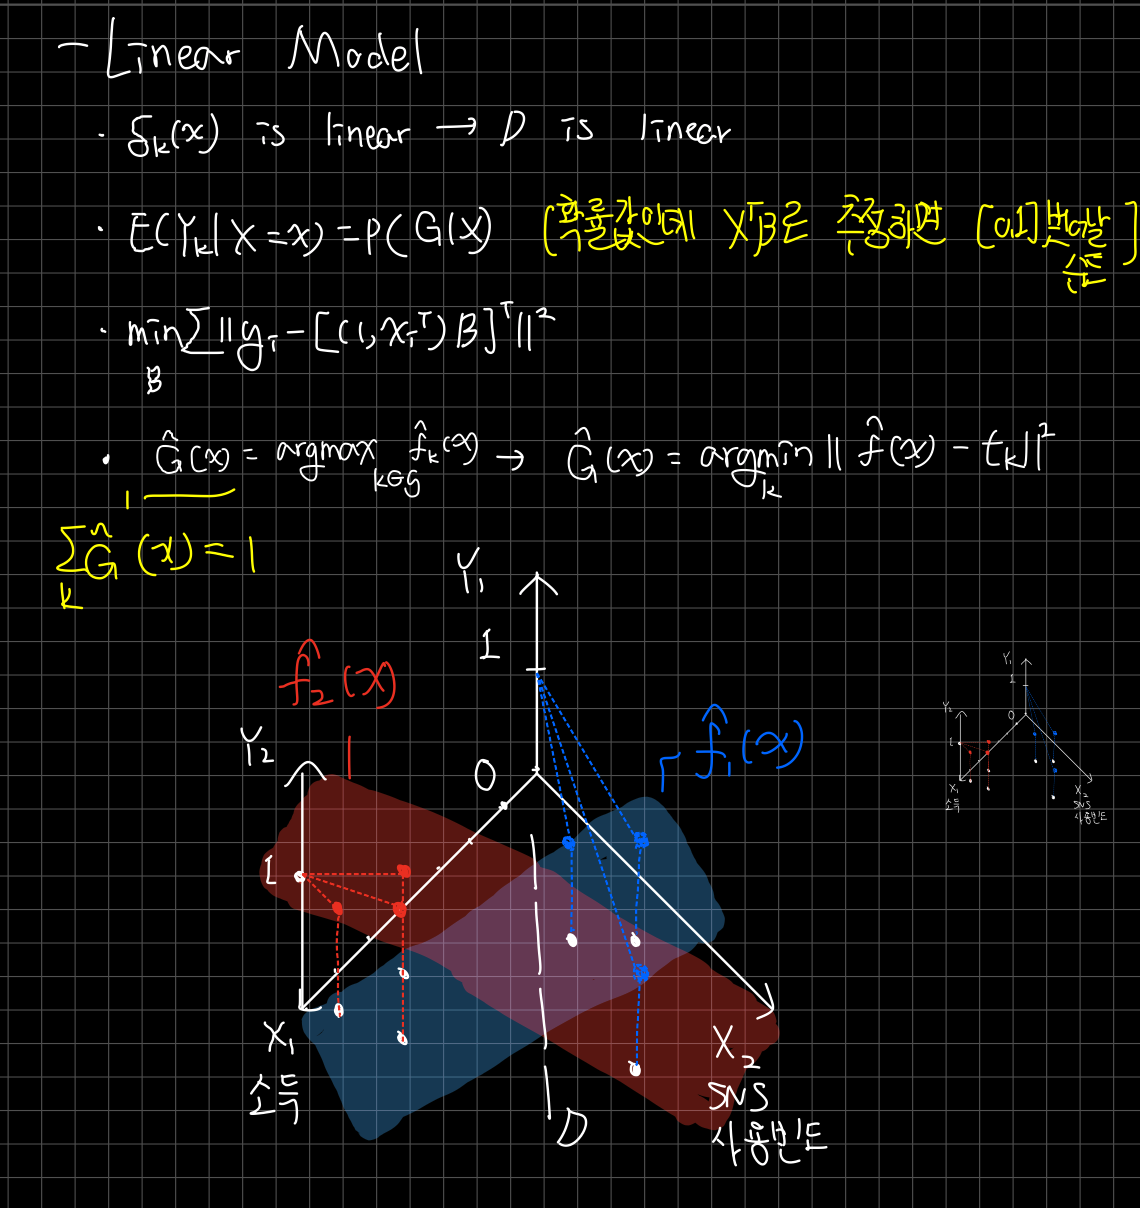 - Linear Model
· δk(x) is linear → D is linear
· E(Yk|X=x) = P(G|X) (확률값인데 XᵀB로 추정하면 [0,1] 벗어날 수도)
· min_B Σ‖yᵢ - [(1, xᵢᵀ)B]ᵀ‖²
· Ĝ(x) = argmax_{k∈g} f̂k(x) → Ĝ(x) = argmin_k ‖f̂(x) - tk‖²
Σ_k Ĝ(x) = 1
Y₁
1
f̂₂(x)
Y₂
0
f̂₁(x)
1
X₁
소득
X₂
SNS
사용빈도
D
Y₁
1
Y₂
0
1
X₁
소득
X₂
SNS
사용빈도